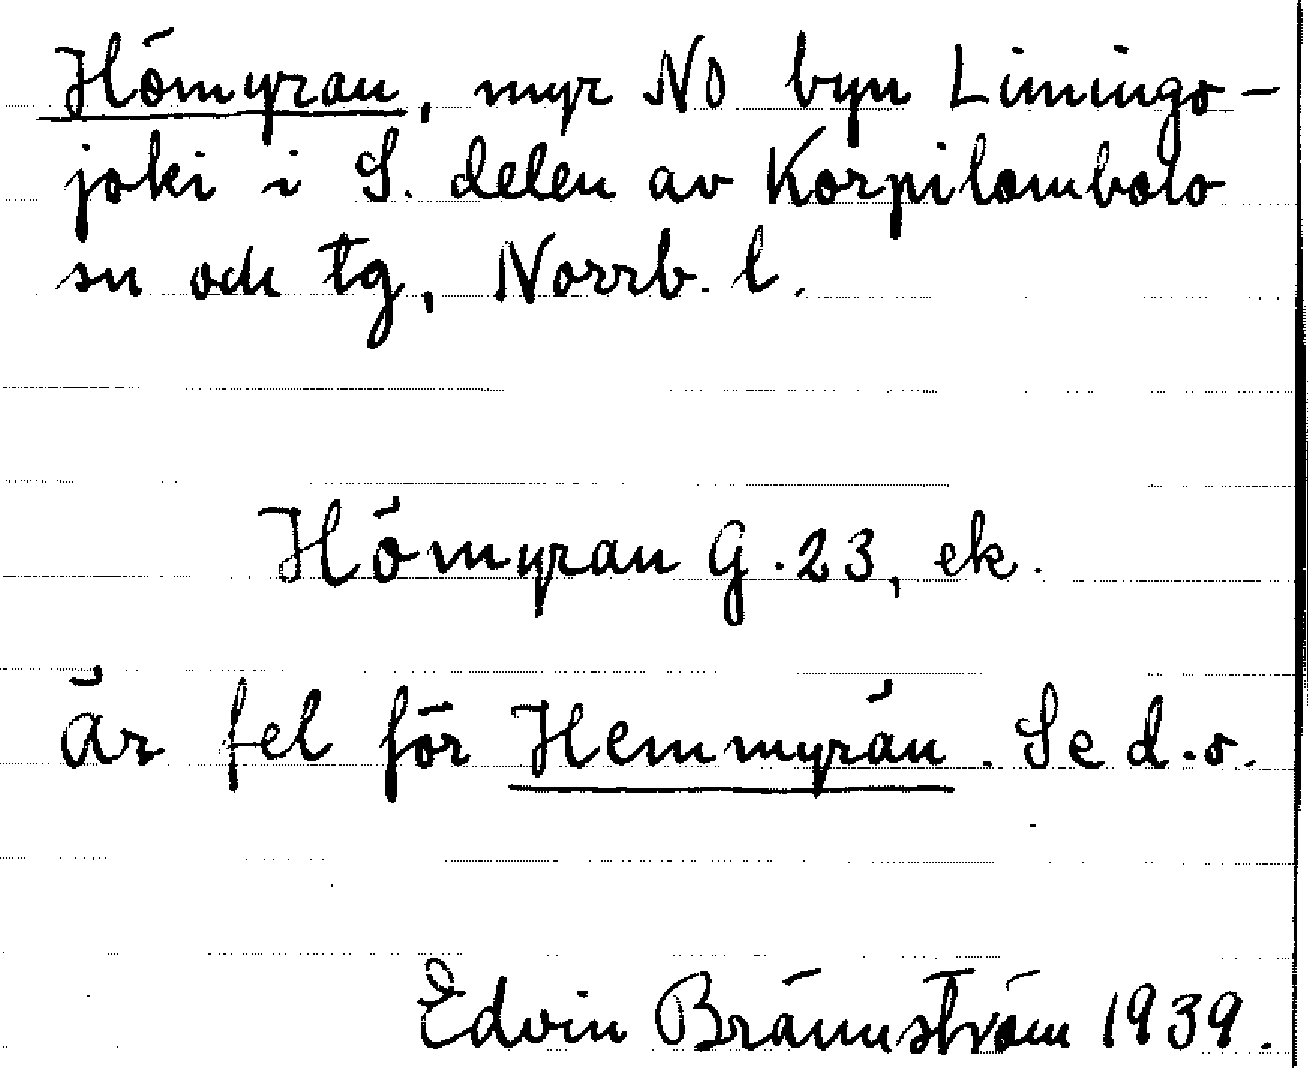 Hömyran, myr NO byn Limingo-
joki i S. delen av Korpilombolo
sn och tg, Norrb. l.
Hömyran G. 23, ek.
Är fel för Hemmyrån. Se d.o.
Edvin Brännström 1939.